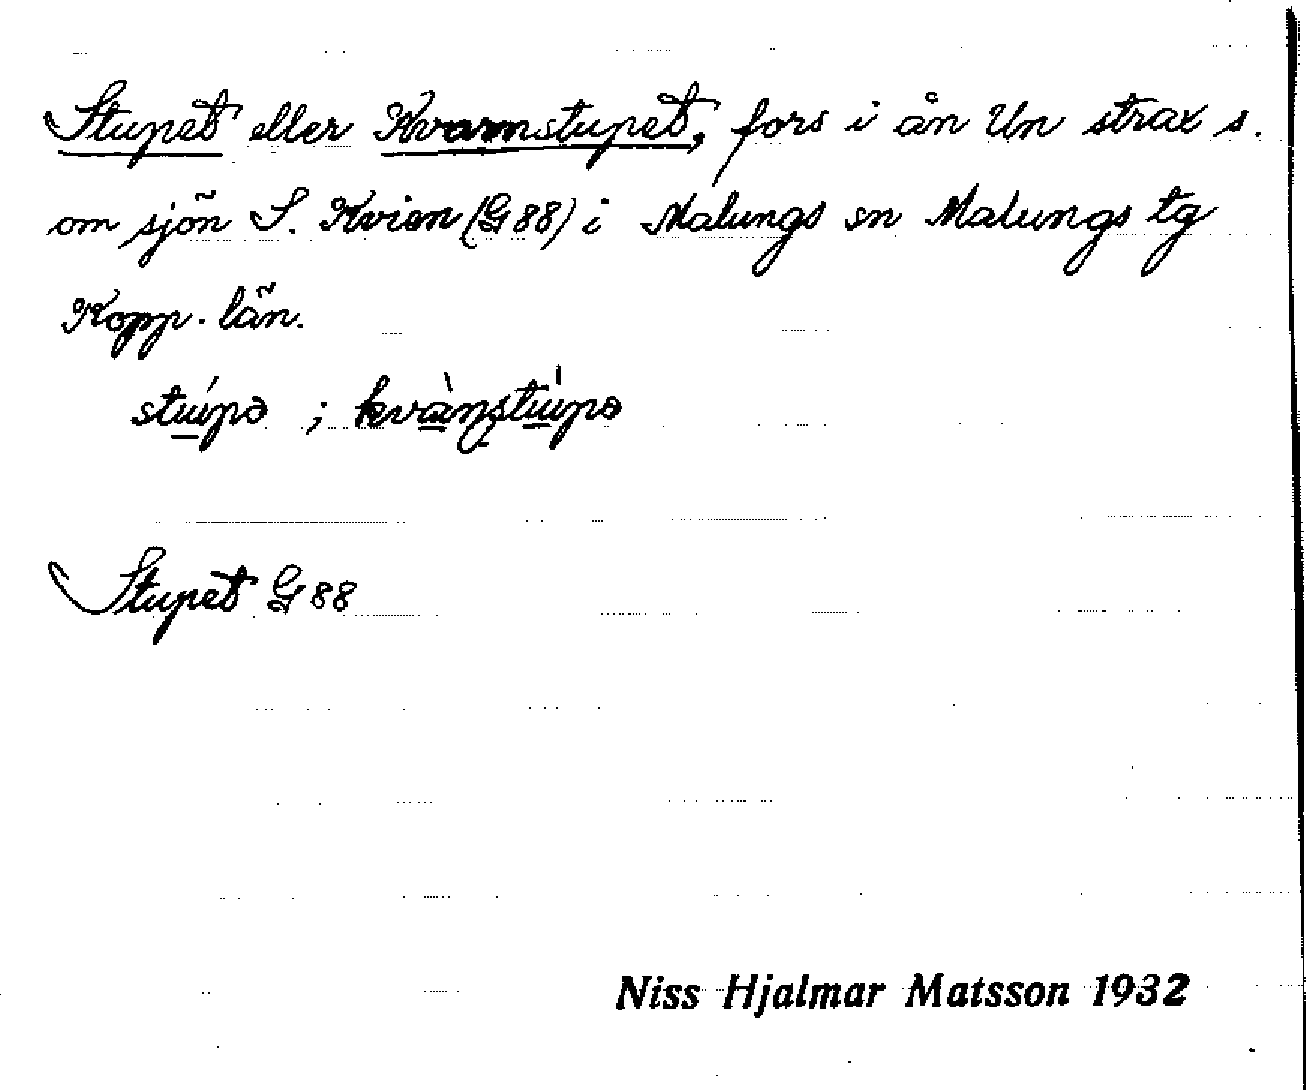 Stupet eller Kvarnstupet, fors i ån Un strax s.
om sjön S. Kvien (G88) i Malungs sn Malungs tg
Kopp. län.
stúpə ; kvànstúpə
Stupet G88
Niss Hjalmar Matsson 1932